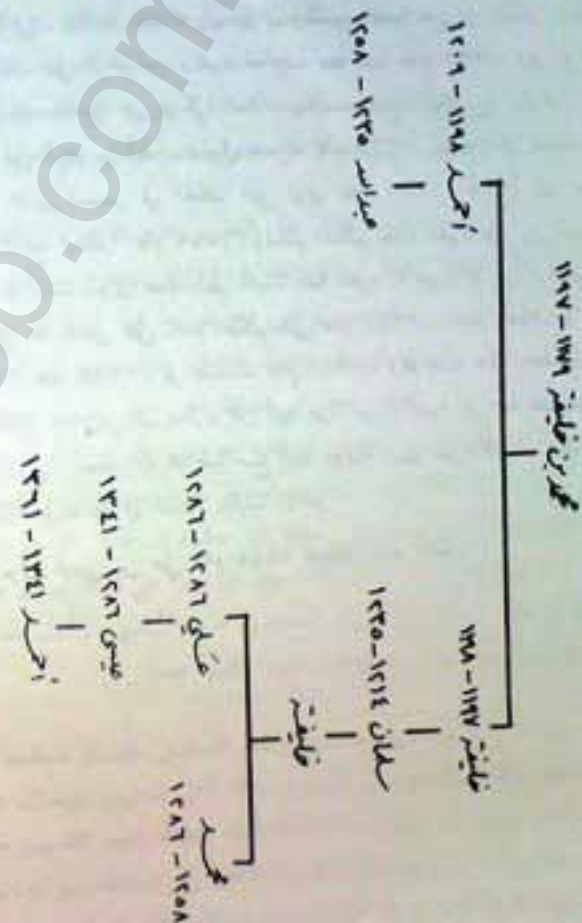 محمد بن خليفة ١١٧٩ - ١١٩٧
خليفة ١١٩٧ - ١١٩٨
أحمد ١١٩٨ - ١٢٠٩
سلمان ١٢١٤ - ١٢٣٥
عبدالله ١٢٣٥ - ١٢٥٨
خليفة
محمد
١٢٥٨ - ١٢٨٦
علي ١٢٨٦ - ١٢٨٦
عيسى ١٢٨٦ - ١٣٤١
أحمد ١٣٤١ - ١٣٦١
b.com